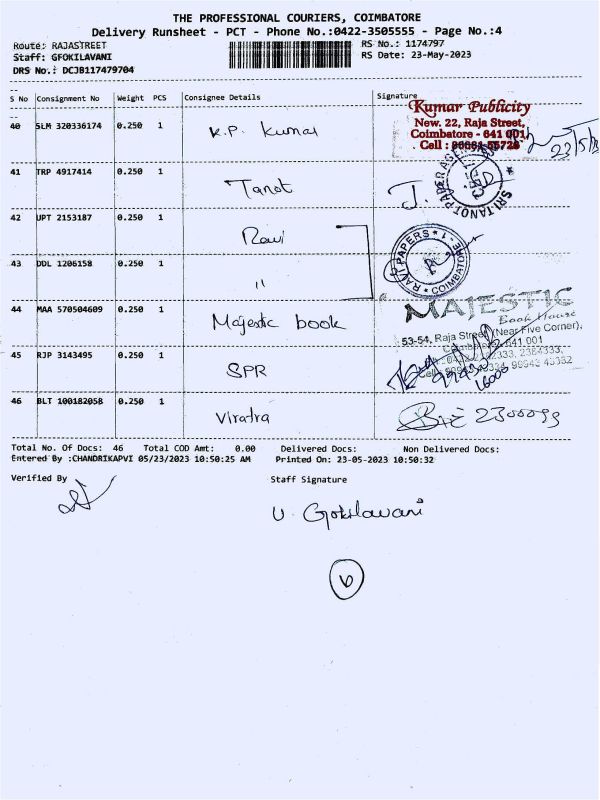 THE PROFESSIONAL COURIERS, COIMBATORE
Delivery Runsheet - PCT - Phone No.:0422-3505555 - Page No.:4
Route: RAJASTREET RS No.: 1174797
Staff: GFOKILAVANI RS Date: 23-May-2023
DRS No.: DCJB117479704
S No Consignment No Weight PCS Consignee Details Signature
Kumar Publicity
New. 22, Raja Street,
Coimbatore - 641 001
Cell :
40 SLM 320336174 0.250 1 K.P. Kumar 23/5/23
41 TRP 4917414 0.250 1 Tanot J.
SRI TANOT PAPER
42 UPT 2153187 0.250 1 Ravi
RAVI PAPERS * COIMBATORE - 1 *
43 DDL 1206158 0.250 1 "
44 MAA 570504609 0.250 1 Majestic book
MAJESTIC
Book House
53-54, Raja Street, (Near Five Corner),
641 001
45 RJP 3143495 0.250 1 SPR
46 BLT 100182058 0.250 1 Viratra 2300099
Total No. Of Docs: 46 Total COD Amt: 0.00 Delivered Docs: Non Delivered Docs:
Entered By :CHANDRIKAPVI 05/23/2023 10:50:25 AM Printed On: 23-05-2023 10:50:32
Verified By Staff Signature
U. Gokilavani
6